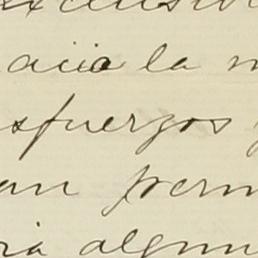 acia la
sfuerzos
an perm
ria algun